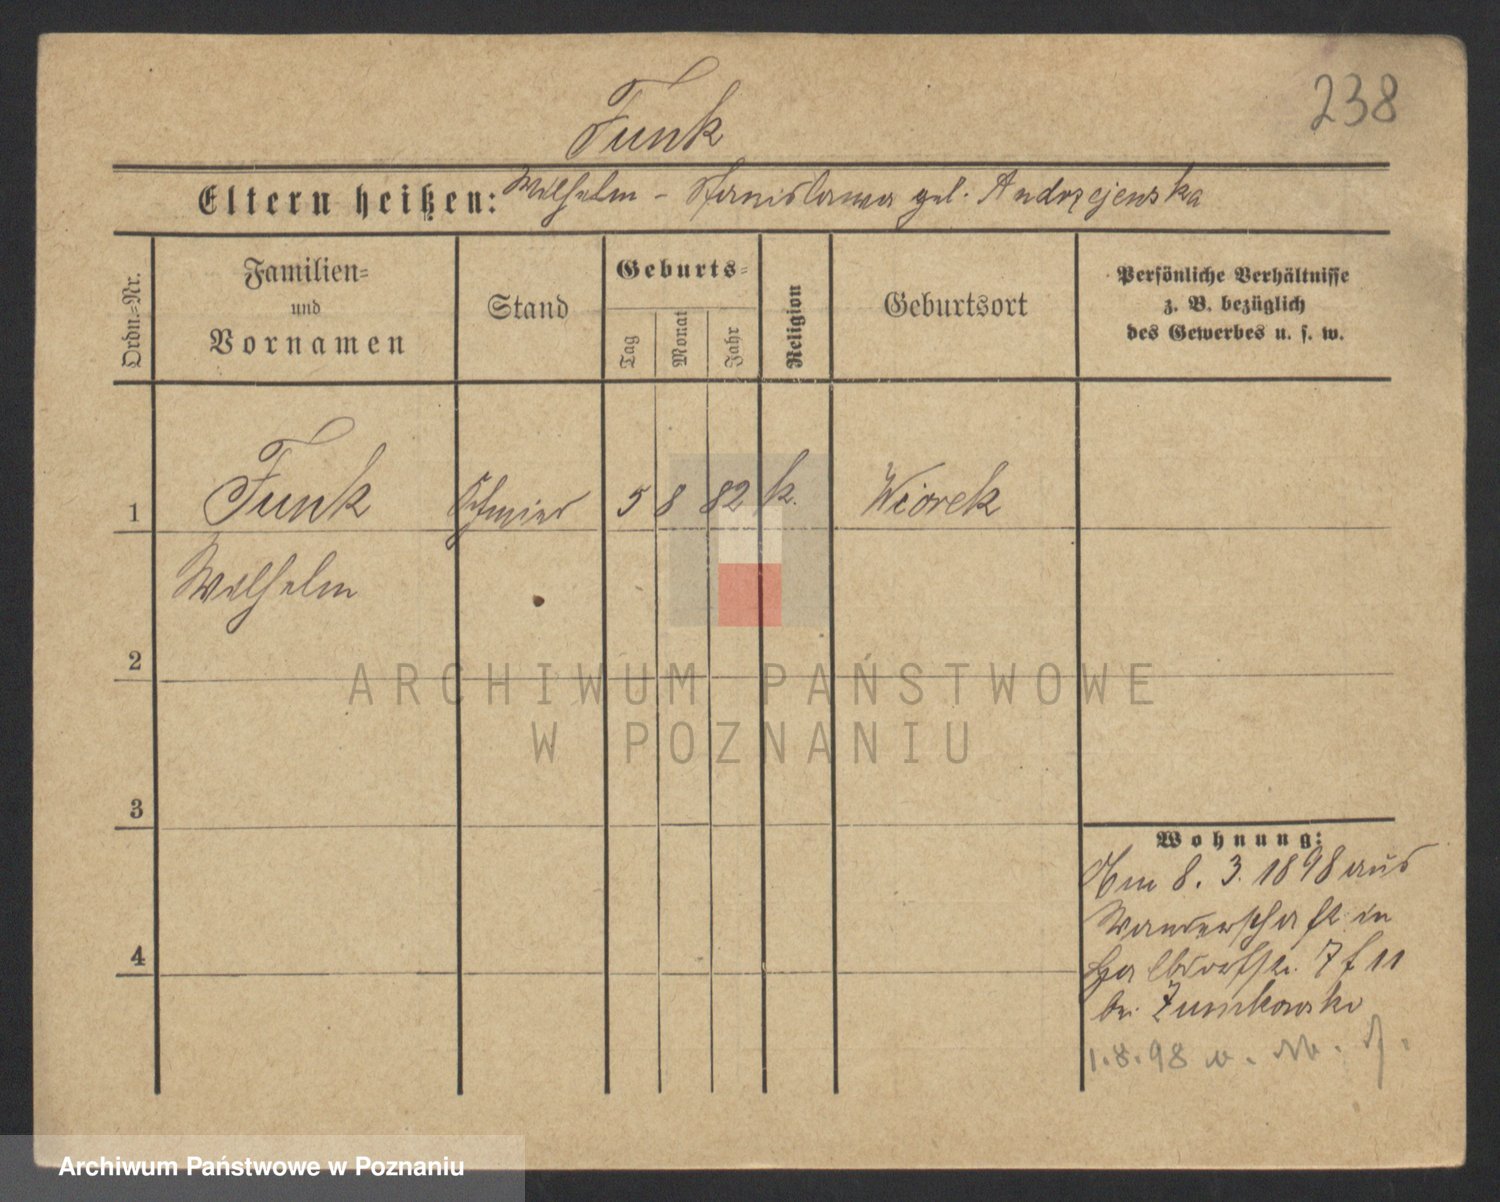 238
Funk
Eltern heißen: Wilhelm - Stanislawa geb. Andrzejewska
Ordn.=Nr.
Familien=
und
Vornamen
Stand
Geburts=
Tag
Monat
Jahr
Religion
Geburtsort
Persönliche Verhältnisse
z. B. bezüglich
des Gewerbes u. s. w.
1 Funk Schmied 5 8 82 k. Wiorek
Wilhelm
2
3
4
Wohnung:
Am 8. 3. 1898 aus
Wanderschaft in
Halbdorfstr. 7 f 11
bei
1.8.98 n.
ARCHIWUM PAŃSTWOWE
W POZNANIU
Archiwum Państwowe w Poznaniu